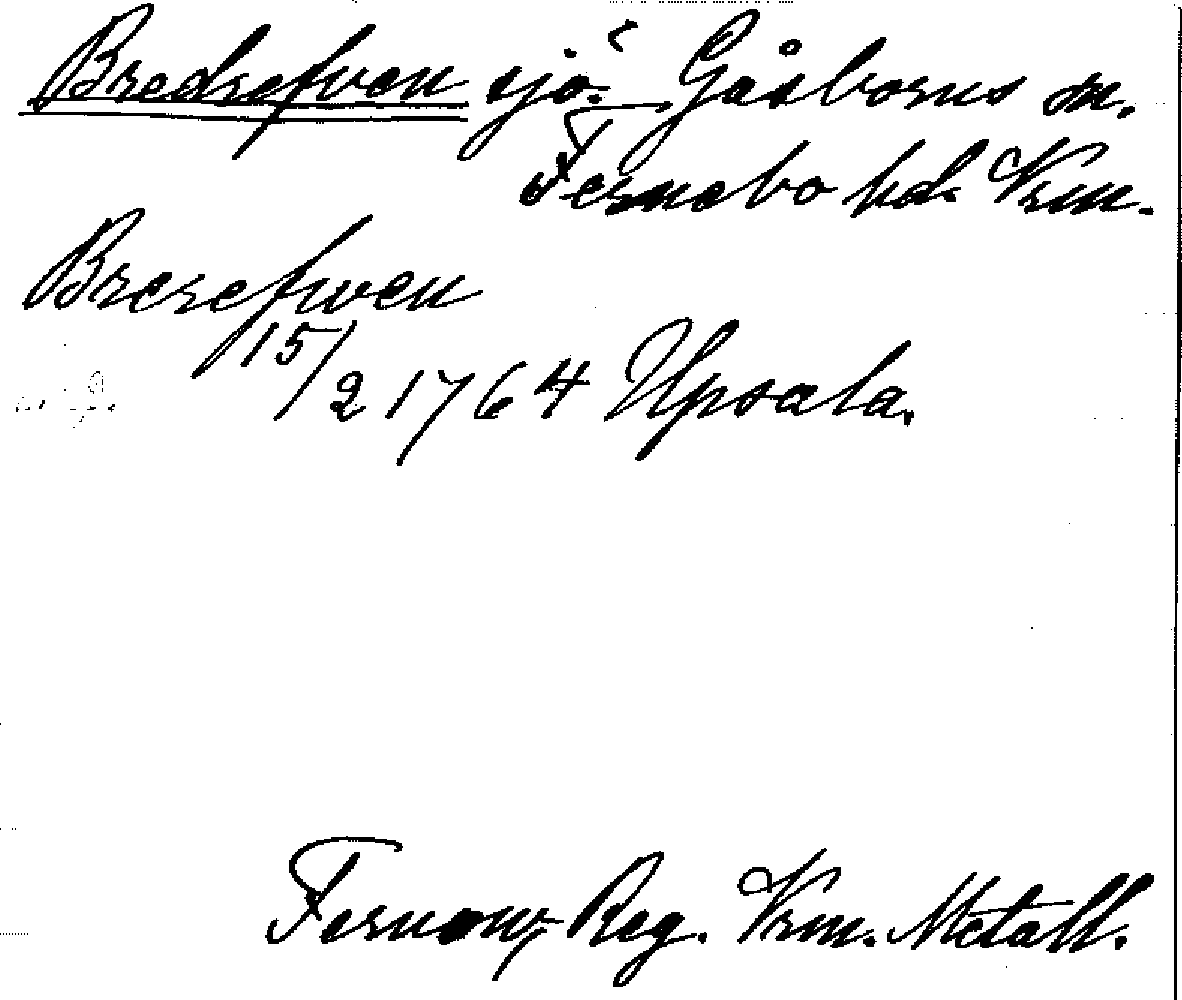 Bredrefven sjö. Gåsborns sn.
Fernebo hd. Vrm.
Brerefwen
15/2 1764 Upsala.
Fernow, Reg. Vrm. Metall.